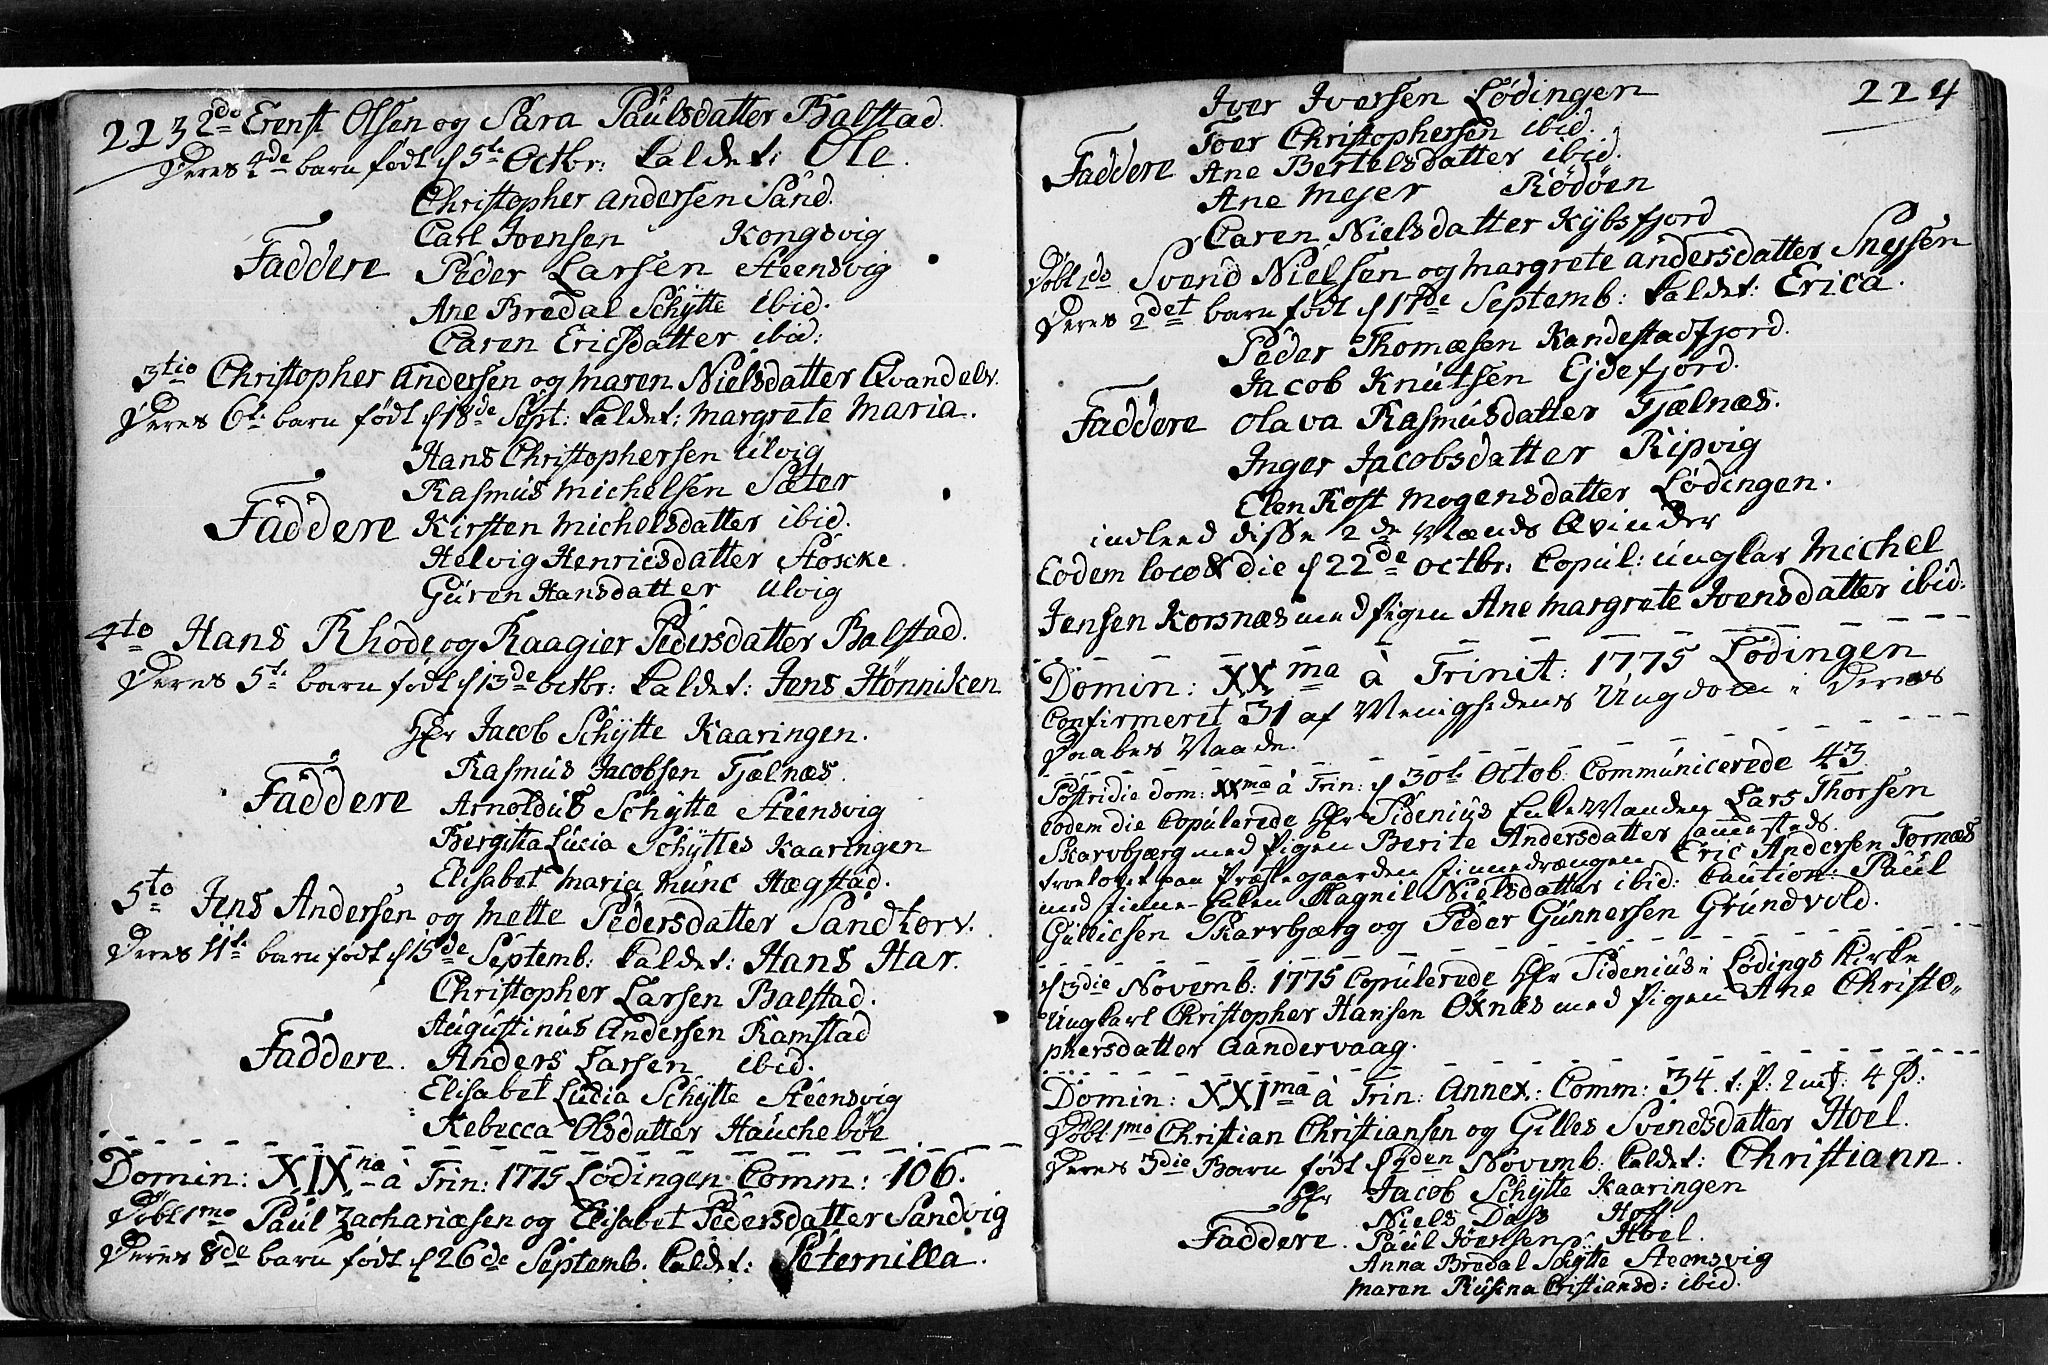 223
2do Ernst Olsen og Sara Paulsdatter Balstad.
Deres 4de barn født d 5te Octbr: kaldet: Ole.
Christopher Andersen Sand.
Carl Ivensen Kongsvig
Faddere Peder Larsen Steensvig
Ane Bredal Schytte ibid.
Caren Ericsdatter ibid:
3tio Christopher Andersen og Maren Nielsdatter Qvandelv.
Deres 6te barn født d 18de Sept: kaldet: Margrete Maria.
Hans Christophersen Ulvig
Rasmus Michelsen Sæter
Faddere Kirsten Michelsdatter ibid.
Helvig Henricsdatter Støscke.
Guren Hansdatter Ulvig
4to Hans Rhode og Raagier Pedersdatter Balstad.
Deres 5te barn født d 13de octbr: kaldet: Jens Hønniken
Hr Jacob Schytte Kaaringen.
Rasmus Jacobsen Tjælnæs.
Faddere Arnoldus Schytte Steensvig
Bergitta Lucia Schyttes Kaaringen
Elisabet Maria Munc Hægstad.
5to Jens Andersen og Mette Pedersdatter Sandtorv.
Deres 4te barn født d 15de Septemb: kaldet: Hans Har.
Christopher Larsen Balstad.
Augustinus Andersen Ramstad
Faddere. Anders Larsen ibid.
Elisabet Lucia Schytte Steensvig
Rebecca Olsdatter Hauckebøe
Domin: XIXna à Trin: 1775 Lødingen Comm: 106.
Døbt 1mo Paul Zachariæsen og Elisabet Pedersdatter Sandvig
Deres 8de barn født d 26de Septemb. kaldet: Peternilla.
224
Iver Iversen Lødingen
Iver Christophersen ibid.
Faddere Ane Bertelsdatter ibid.
Ane Mejer Rødøen
Caren Nielsdatter Kybsfjord
Døbt 2do Svend Nielsen og Margrete Andersdatter Snejsen
Deres 2det barn født d 17de Septemb: kaldet: Erica.
Peder Thomæsen Kandestadfjord.
Jacob Knutsen Ejdefjord.
Faddere Olava Rasmusdatter Tjælnæs.
Inger Jacobsdatter Ripvig
Elen Kost Mogensdatter Lødingen.
indleed disse 2de Mænds Qvinder
Eodem loco & die d 22de octbr: Copul: ungkar Michel
Jensen Korsnæs med Pigen Ane Margrete Ivensdatter ibid:
Domin: XXma à Trinit: 1775 Lødingen
Confirmeret 31 af Menighedens Ungdom i Deres
Daabes Naade.
Postridie dom: XXmæ à Trin: d 30te Octob: Communicerede 43
Eodem die Copulerede Hr Tidenius Enke Manden Lars Thorsen
Skarvbjærg med Pigen Berite Andersdatter sammesteds.
trovlovet paa Præstegaarden finnedrængen Eric Andersen Fornæs
med finne Enken Magnil Nielsdatter ibid: Caution: Paul
Gullicsen Skarvbjærg og Peder Gunnersen Grundvold.
d 3die Novemb: 1775 Copulerede Hr Tidenius i Lødings Kirke
Ungkarl Christopher Hansen Oxnæs med Pigen Ane Christo-
phersdatter Aandervaag.
Domin: XXIma à Trin: Annex: Comm: 34. t: P: 2 mk. 4 s:
Døbt 1mo Christian Christiansen og Gilles Svendsdatter Hoel.
Deres 3die Barn født d 2den Novemb: kaldet: Christiann.
Hr Jacob Schytte Kaaringen
Niels Dass Hoff
Faddere. Paul Joensen Hoel.
Anna Bredal Schytte Steensvig
Maren Rusina Cristiansd: ibid.